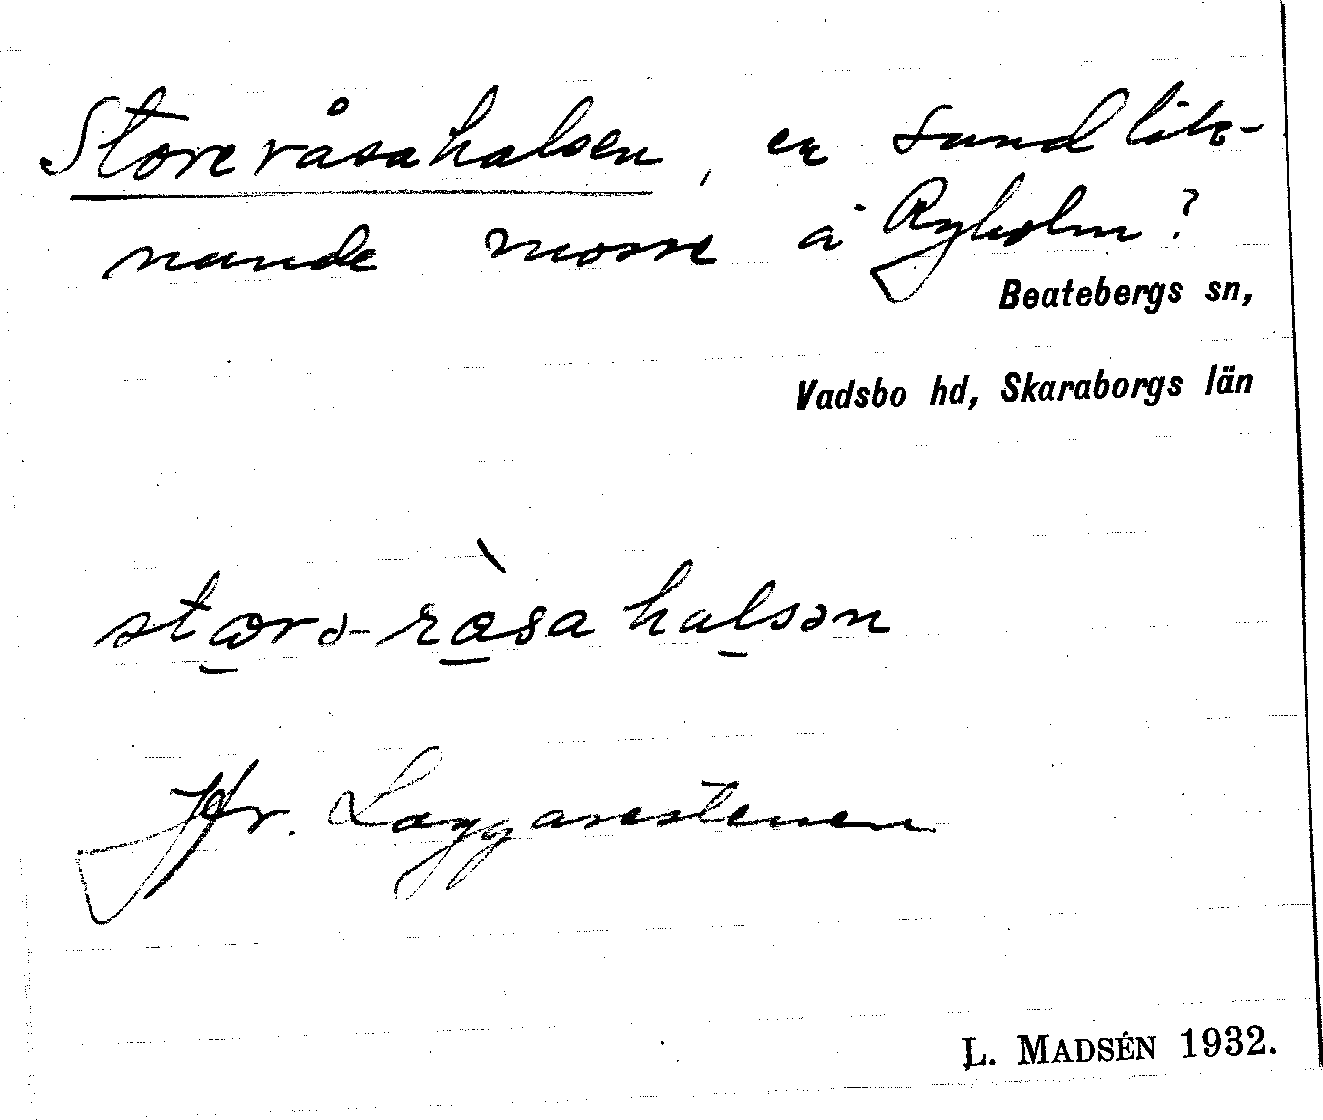 Storeråsahalsen, en sund lik-
nande mosse å Ryholm?
Beatebergs sn,
Vadsbo hd, Skaraborgs län
Jfr. Laggarestenen
L. MADSÉN 1932.